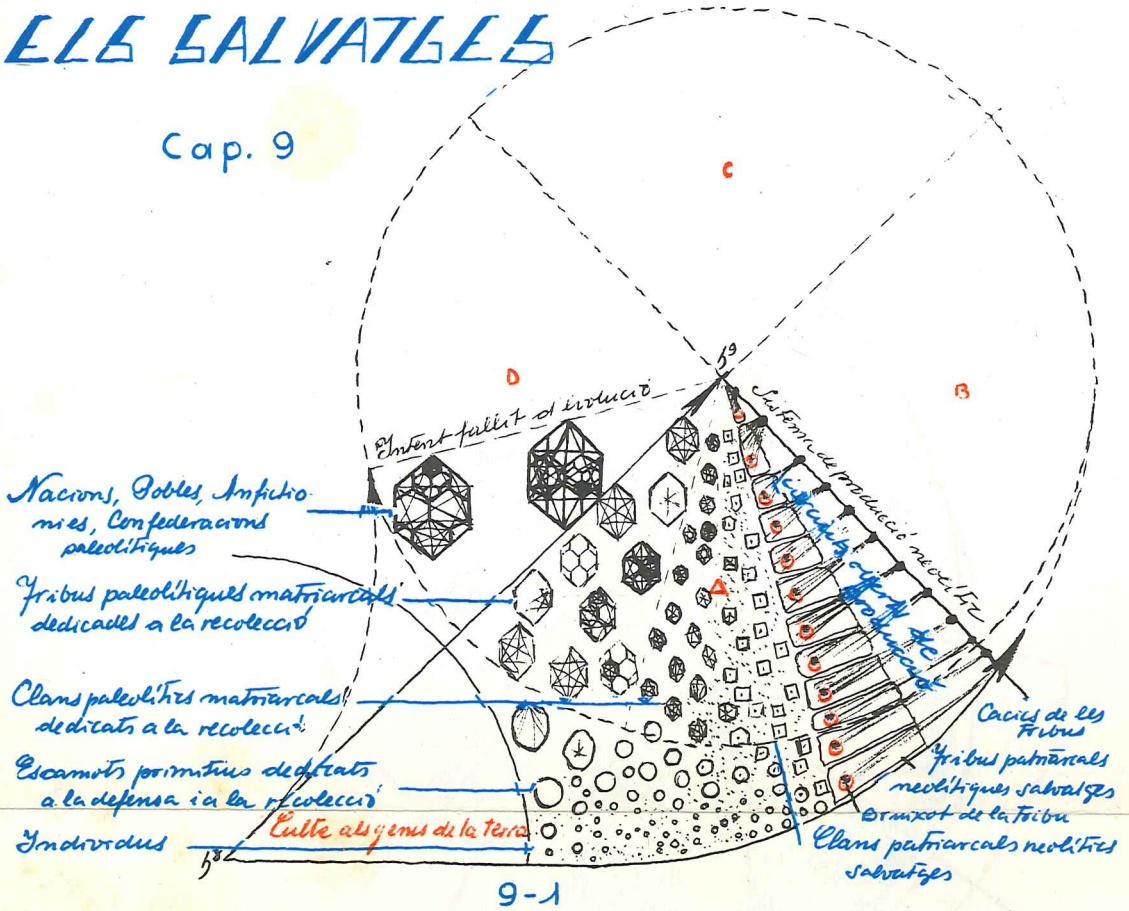 ELS SALVATGES
Cap. 9
C
h9
D
B
Intent fallit d'evolució
Sistema de producció neolític
Nacions, Pobles, Anfictio-
nies, Confederacions
paleolítiques
Tribus paleolítiques matriarcals
dedicades a la recolecció
A
de
producció
Clans paleolítics matriarcals
dedicats a la recolecció
Escamots primitius dedicats
a la defensa i a la recolecció
Culte als genis de la terra
Individus
h8
Cacics de les
Tribus
Tribus patriarcals
neolítiques salvatges
Bruixot de la Tribu
Clans patriarcals neolítics
salvatges
9-1